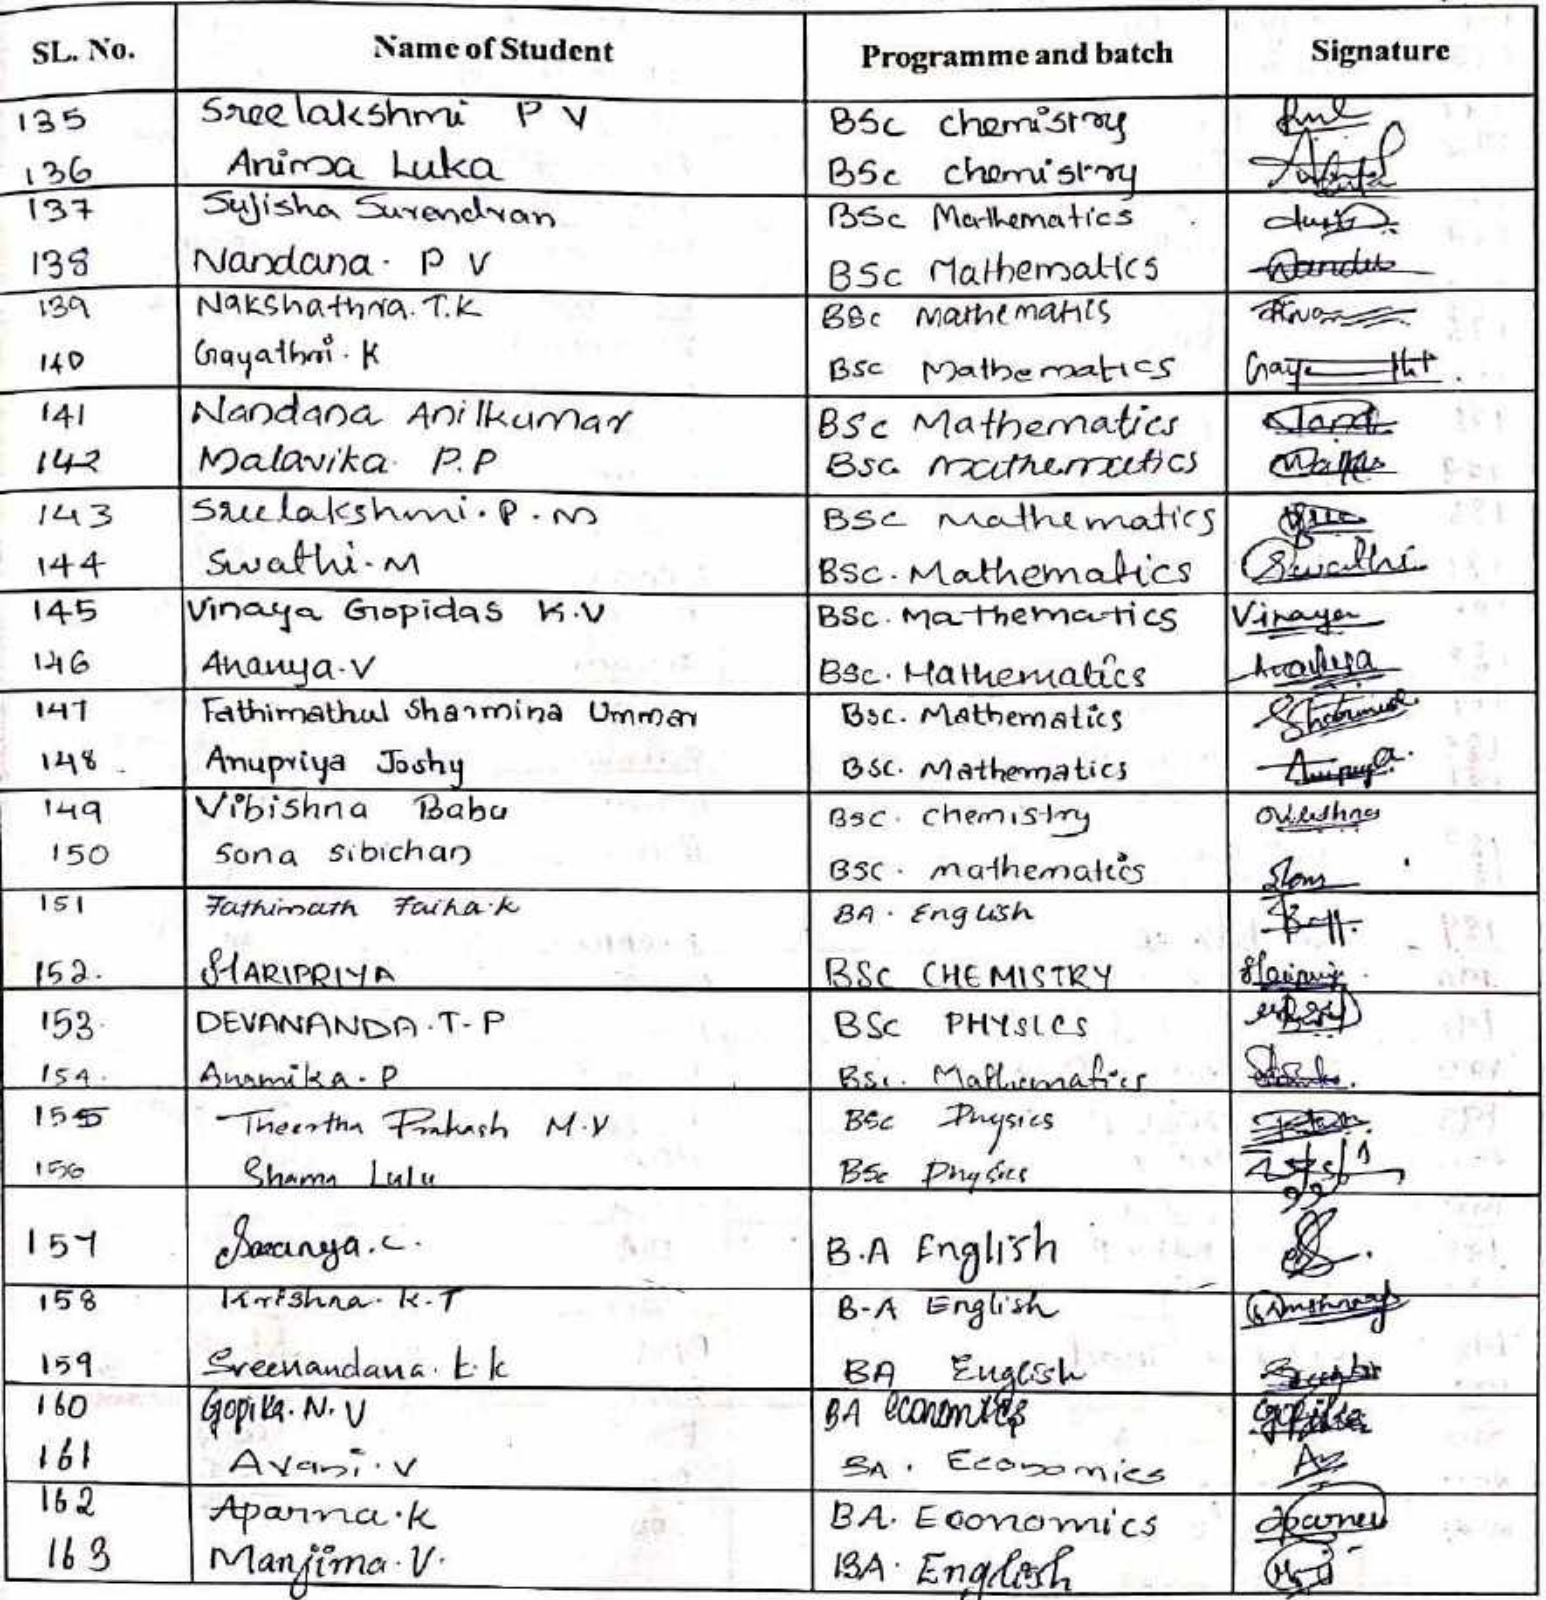 SL. No. Name of Student Programme and batch Signature
135 Sreelakshmi P V BSc chemistry
136 Anima Luka BSc chemistry
137 Sujisha Surendran BSc Mathematics
138 Nandana. P V BSc Mathematics
139 Nakshathra. T.K BSc Mathematics
140 Gayathri. K BSc Mathematics
141 Nandana Anilkumar BSc Mathematics
142 Malavika P.P BSc mathematics
143 Sreelakshmi. P. M BSc Mathematics
144 Swathi. M BSc. Mathematics Swathi
145 Vinaya Gopidas K.V BSc. Mathematics Vinaya
146 Ananya. V BSc. Mathematics
147 Fathimathul Sharmina Ummar BSc. Mathematics
148 Anupriya Joshy BSc. Mathematics
149 Vibishna Babu BSC. chemistry
150 Sona Sibichan BSC. mathematics
151 Fathimath Faiha. k BA. English
152. HARIPRIYA BSC CHEMISTRY
153 DEVANANDA. T. P BSc PHYSICS
154. Anamika. P BSc. Mathematics
155 Theertha Prakash M.V BSc Physics
156 Shama Lulu BSc Physics
157 Saranya. C. B.A English
158 Krishna. K.T B.A English
159 Sreenandana. k. k BA English
160 Gopika. N. V BA economics
161 Avani. v BA. Economics
162 Aparna. K BA. Economics
163 Manjima. V. BA. English